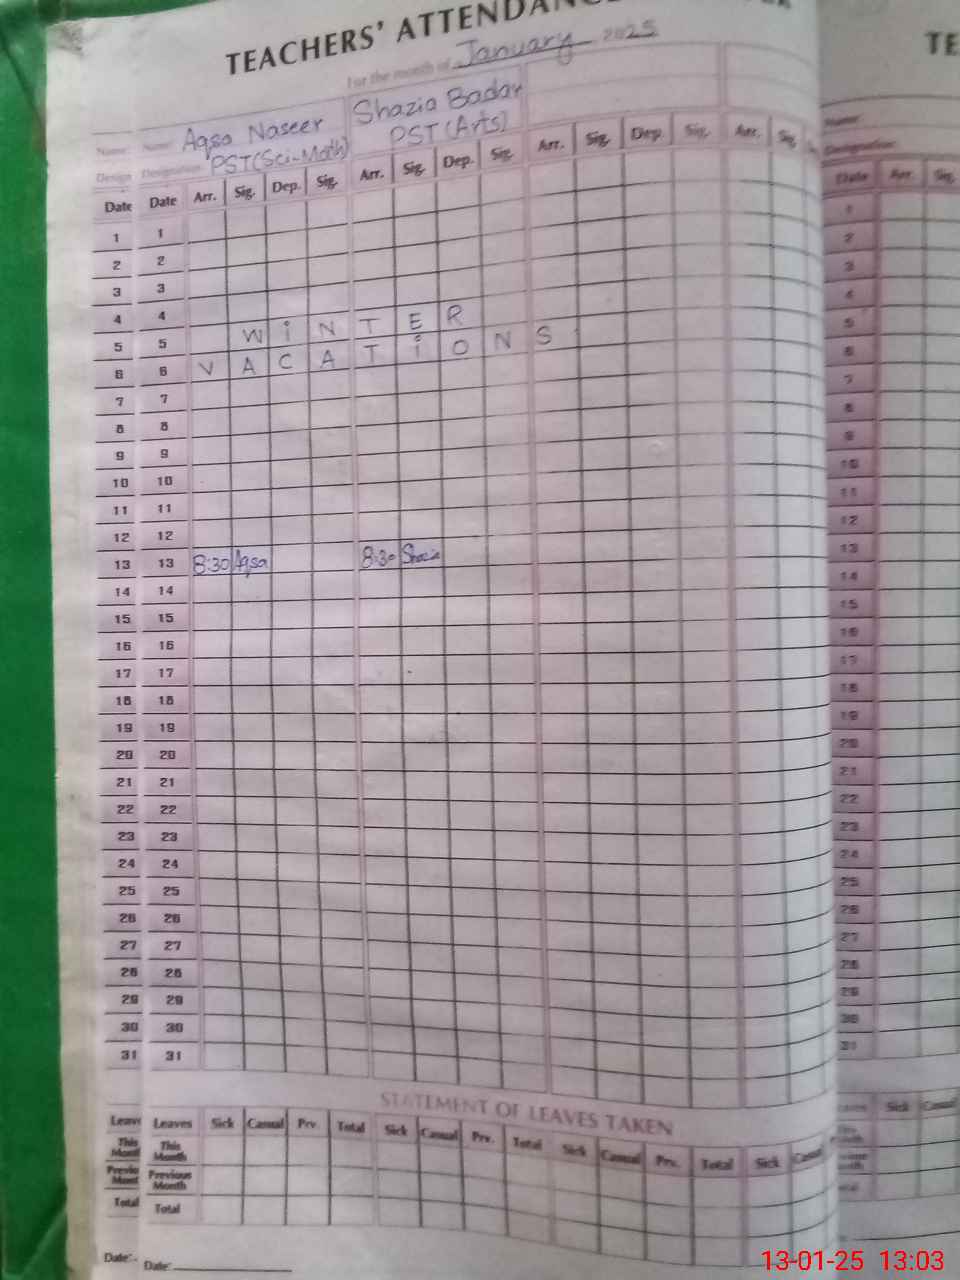 TEACHERS' ATTENDANC
For the month of January 2025
Name: Name: Aqsa Naseer Shazia Badar
Design Designation: PST(Sci-Math) PST(Arts)
Date Date Arr. Sig. Dep. Sig. Arr. Sig. Dep. Sig. Arr. Sig. Dep. Sig. Arr. Sig.
1 1
2 2
3 3
4 4
WiNTER
5 5
VACATiONS
6 6
7 7
8 8
9 9
10 10
11 11
12 12
13 13 8:30 Aqsa 8:30 Shazia
14 14
15 15
16 16
17 17
18 18
19 19
20 20
21 21
22 22
23 23
24 24
25 25
26 26
27 27
28 28
29 29
30 30
31 31
STATEMENT OF LEAVES TAKEN
Leave Leaves Sick Casual Prv. Total Sick Casual Prv. Total Sick Casual Prv. Total Sick Casual
This Mont This Month
Previo Mont Previous Month
Total Total
Date:- Date:
TE
Name:
Designation:
Date Arr. Sig.
1
2
3
4
5
6
7
8
9
10
11
12
13
14
15
16
17
18
19
20
21
22
23
24
25
26
27
28
29
30
31
Sick Casual
13-01-25 13:03